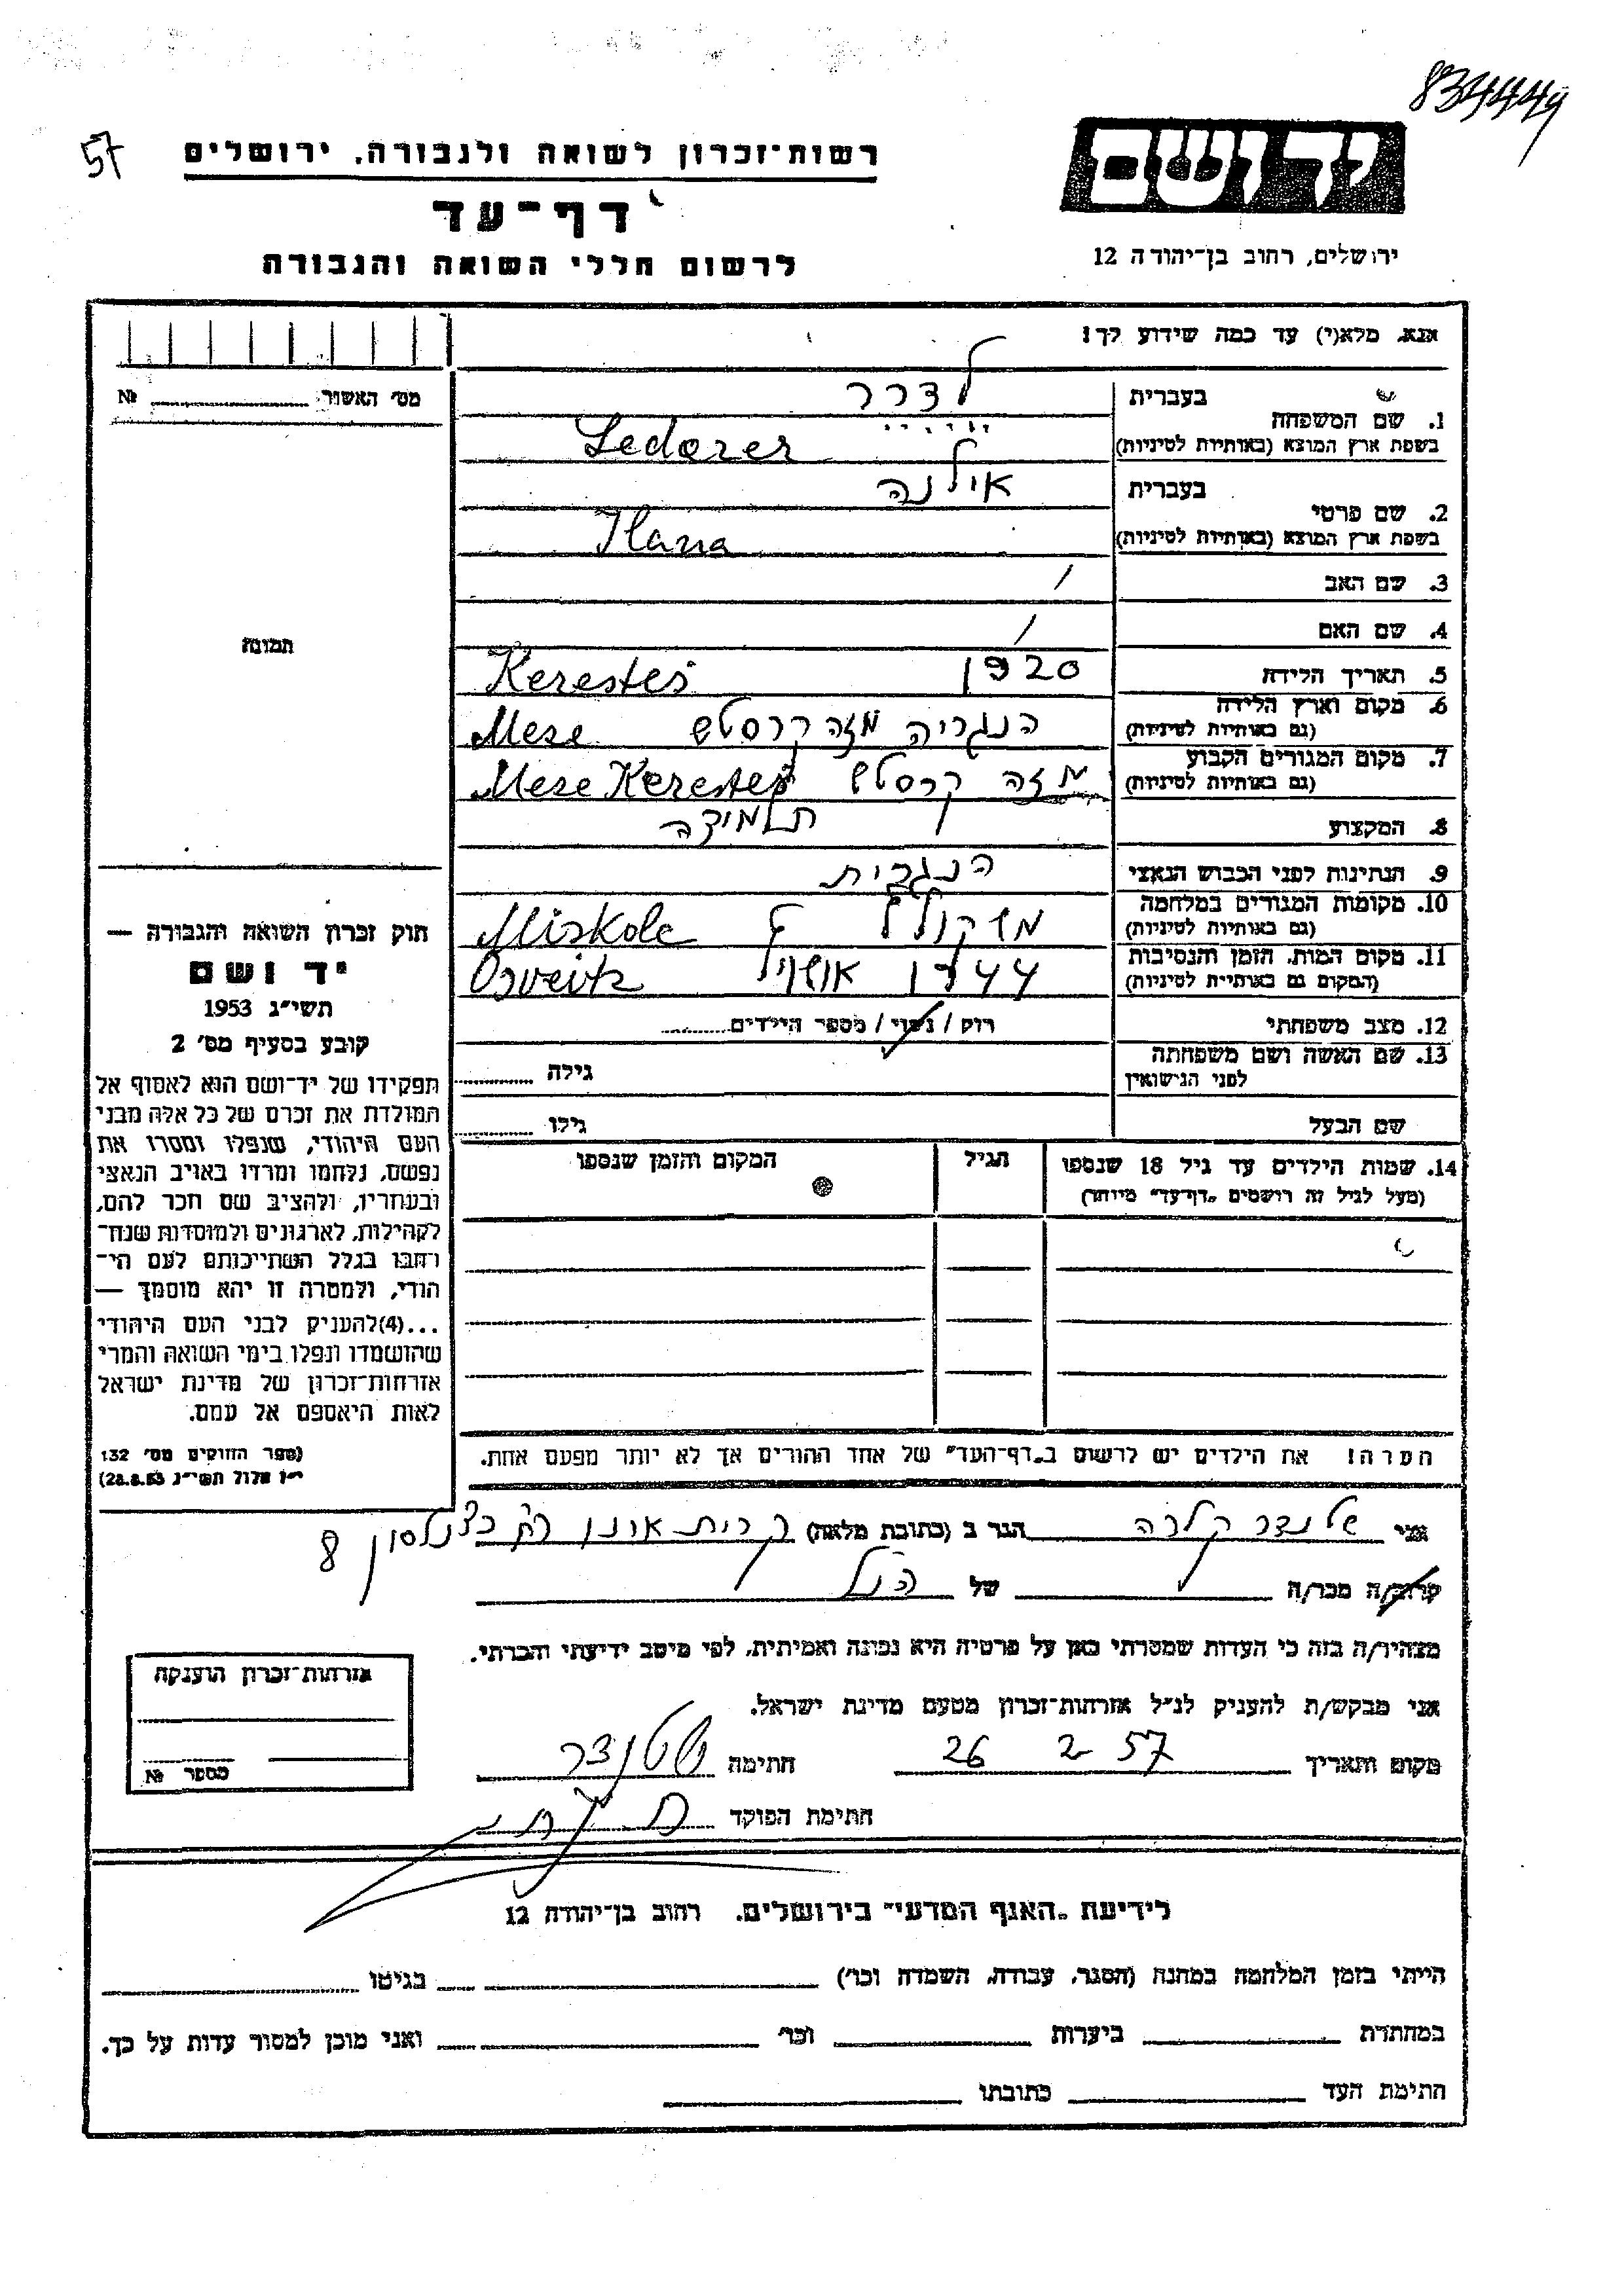 834449
57
יד ושם
רשות־זכרון לשואה ולגבורה. ירושלים
דף־עד
לרשום חללי השואה והגבורה
ירושלים, רחוב בן־יהודה 12
אנא. מלא(י) עד כמה שידוע לך!
מס׳ האשור № 
1. שם המשפחה
בעברית לדרר
בשפת ארץ המוצא (באותיות לטיניות) Lederer
2. שם פרטי
בעברית אילנה
בשפת ארץ המוצא (באותיות לטיניות) Ilana
3. שם האב /
4. שם האם /
5. תאריך הלידה 1920 Kerestes
6. מקום וארץ הלידה
(גם באותיות לטיניות) הנגריה מזה קרסטש Mese
7. מקום המגורים הקבוע
(גם באותיות לטיניות) מזה קרסטש Mese Kerestes
8. המקצוע תלמידה
9. הנתינות לפני הכבוש הנאצי הנגרית
10. מקומות המגורים במלחמה
(גם באותיות לטיניות) Miskolc
11. מקום המות. הזמן והנסיבות
(המקום גם באותיות לטיניות) 1944 Osveitz
12. מצב משפחתי רוק / נשוי / מספר הילדים
13. שם האשה ושם משפחתה
לפני הנישואין גילה
שם הבעל גילו
14. שמות הילדים עד גיל 18 שנספו
(מעל לגיל זה רושמים „דף־עד״ מיוחד)
הגיל
המקום והזמן שנספו
הערה! את הילדים יש לרשום ב„דף־העד״ של אחד ההורים אך לא יותר מפעם אחת.
תמונה
חוק זכרון השואה והגבורה —
יד ושם
תשי״ג 1953
קובע בסעיף מס׳ 2
תפקידו של יד־ושם הוא לאסוף אל
המולדת את זכרם של כל אלה מבני
העם היהודי, שנפלו ומסרו את
נפשם, נלחמו ומרדו באויב הנאצי
ובעוזריו, ולהציב שם וזכר להם,
לקהילות, לארגונים ולמוסדות שנח־
רבו בגלל השתייכותם לעם הי־
הודי, ולמטרה זו יהא מוסמך —
...(4)להעניק לבני העם היהודי
שהושמדו ונפלו בימי השואה והמרי
אזרחות־זכרון של מדינת ישראל
לאות היאספם אל עמם.
(ספר החוקים מס׳ 132
י״ז אלול תשי״ג 28.8.53)
אני קלרה הגר ב (כתובת מלאה) קרית אונו רח׳ כצנלסון 8
קרוב/ה מכר/ה של הנ״ל
מצהיר/ה בזה כי העדות שמסרתי כאן על פרטיה היא נכונה ואמיתית. לפי מיטב ידיעתי והכרתי.
אני מבקש/ת להעניק לנ״ל אזרחות־זכרון מטעם מדינת ישראל.
מקום ותאריך 26 2 57 חתימה
חתימת הפוקד
אזרחות־זכרון הוענקה
מספר №
לידיעת „האגף המדעי״ בירושלים. רחוב בן־יהודה 12
הייתי בזמן המלחמה במחנה (הסגר, עבודה, השמדה וכו׳) בגיטו
במחתרת ביערות וכו׳ ואני מוכן למסור עדות על כך.
חתימת העד כתובתו